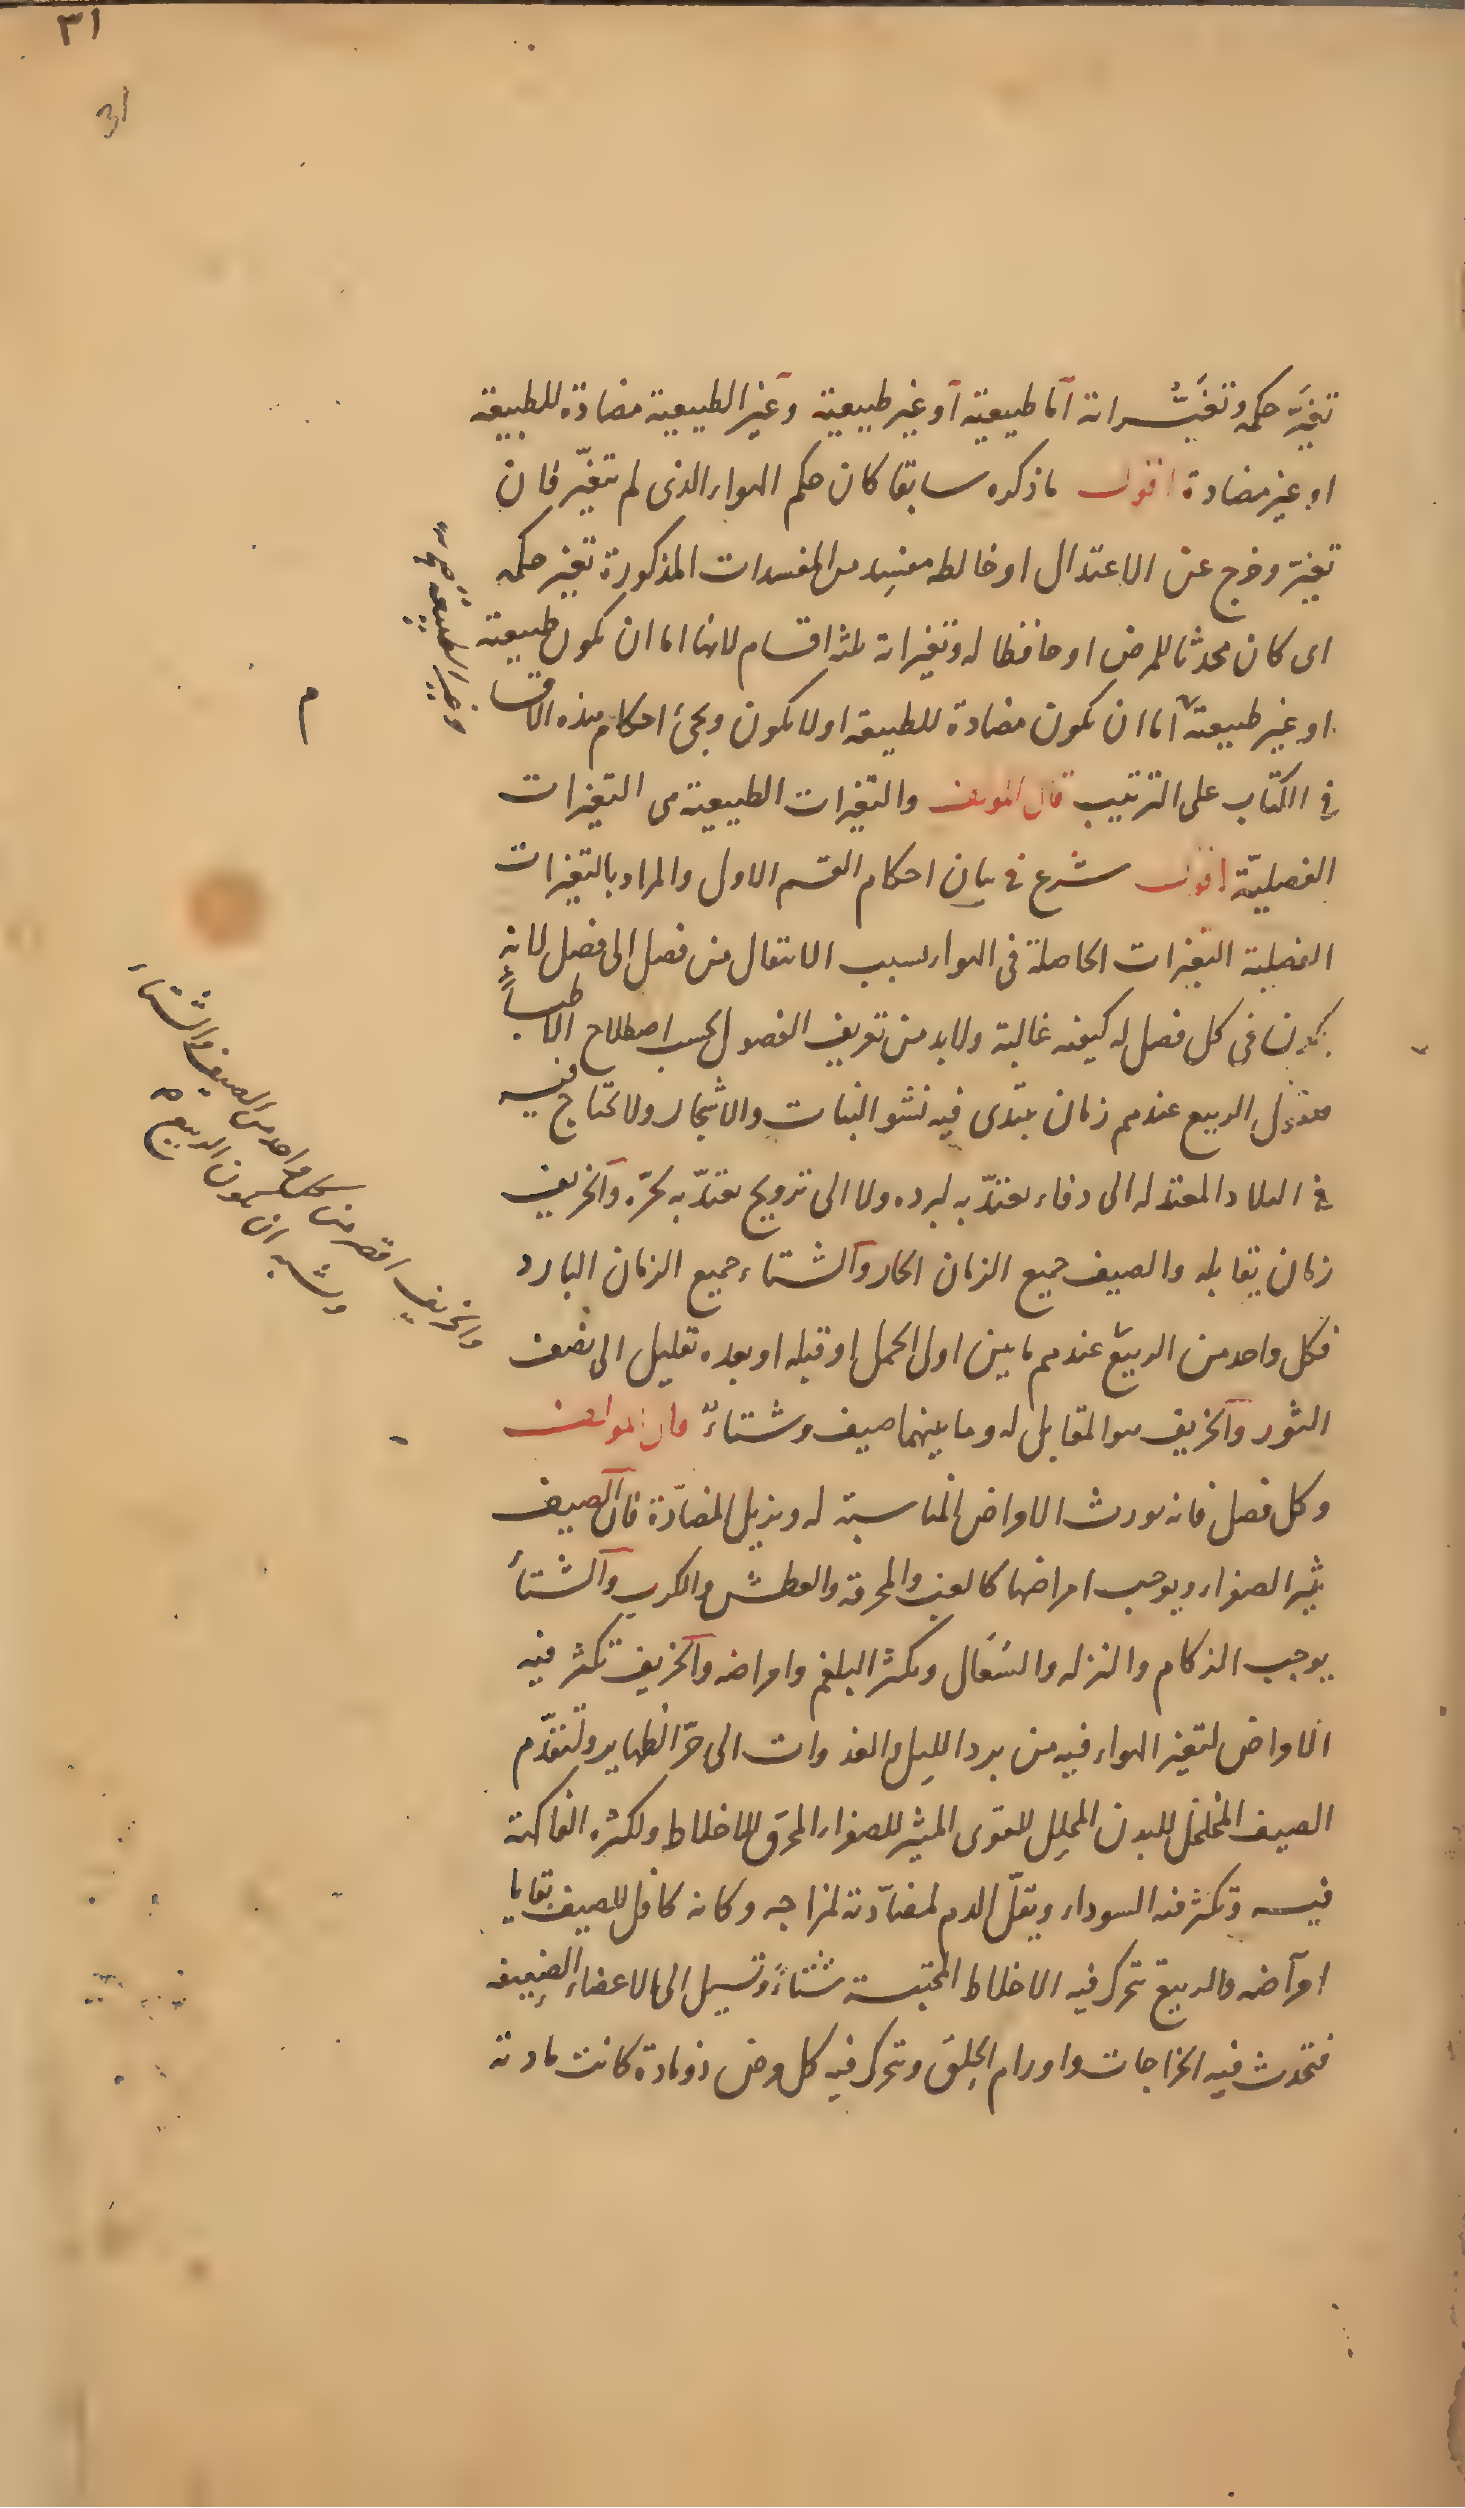 ٣١
31
تغيّر حكمه وتغيُّراته اما طبيعية او غير طبيعية وغير الطبيعية مضادة للطبيعة
او غير مضادة اقول ما ذكره سابقا كان حكم الهواء الذى لم يتغيّر فان
تغيّر وخرج عن الاعتدال او خالطه مفسد من المفسدات المذكورة تغير حكمه
اى كان محدثا للمرض او حافظا له وتغيراته ثلثة اقسام لانها اما ان يكون طبيعية
او غير طبيعية اما ان يكون مضادة للطبيعة او لا يكون ويجئ احكام هذه الاقسا
م
وغير الطبيعية صح
فى الكتاب على الترتيب قال المؤلف والتغيرات الطبيعية هى التغيرات
الفصليّة اقول شرع فى بيان احكام القسم الاول والمراد بالتغيرات
الفصلية التغيرات الحاصلة فى الهواء بسبب الانتقال من فصل الى فصل لانه
يكون فى كل فصل له كيفية غالبة ولابد من تعريف الفصول بحسب اصطلاح الاطباء
فنقول الربيع عندهم زمان يبتدى فيه نشو النبات والاشجار ولا تحتاج فيه
فى البلاد المعتدله الى دفاء يعتدّ به لبرده ولا الى ترويح يعتدّ به لحرّه والخريف
زمان يقابله والصيف جميع الزمان الحار والشتاء جميع الزمان البارد
فكل واحد من الربيع عندهم ما بين اول الحمل او قبله او بعده بقليل الى نصف
والخريف اقصر من كل واحد من الصيف والشتاء
ويشبه ان يكون الربيع
الثور والخريف هو المقابل له وما بينهما صيف وشتاء قال المؤلف
وكل فصل فانه يورث الامراض المناسبة له ويزيل المضادّة فان الصيف
يثير الصفراء ويوجب امراضها كالغب والمحرقة والعطش والكرب والشتاء
يوجب الزكام والنزله والسّعال ويكثر البلغم وامراضه والخريف تكثر فيه
الامراض لتغير الهواء فيه من برد الليل والغدوات الى حرّ الظهاير ولتقدّم
الصيف المخلخل للبدن المحلل للقوى المثير للصفراء المحرق للاخلاط ولكثرة الفاكهة
فيه وتكثر فيه السوداء ويقلّ الدم لمضادّته لمزاجه وكانه كافل للصيف بقايا
امراضه والربيع تتحرك فيه الاخلاط المحتبسة شتاءً وتسيل الى الاعضاء الضعيفه
فتحدث فيه الخراجات واورام الحلق ويتحرك فيه كل مرض ذو مادة كانت مادته